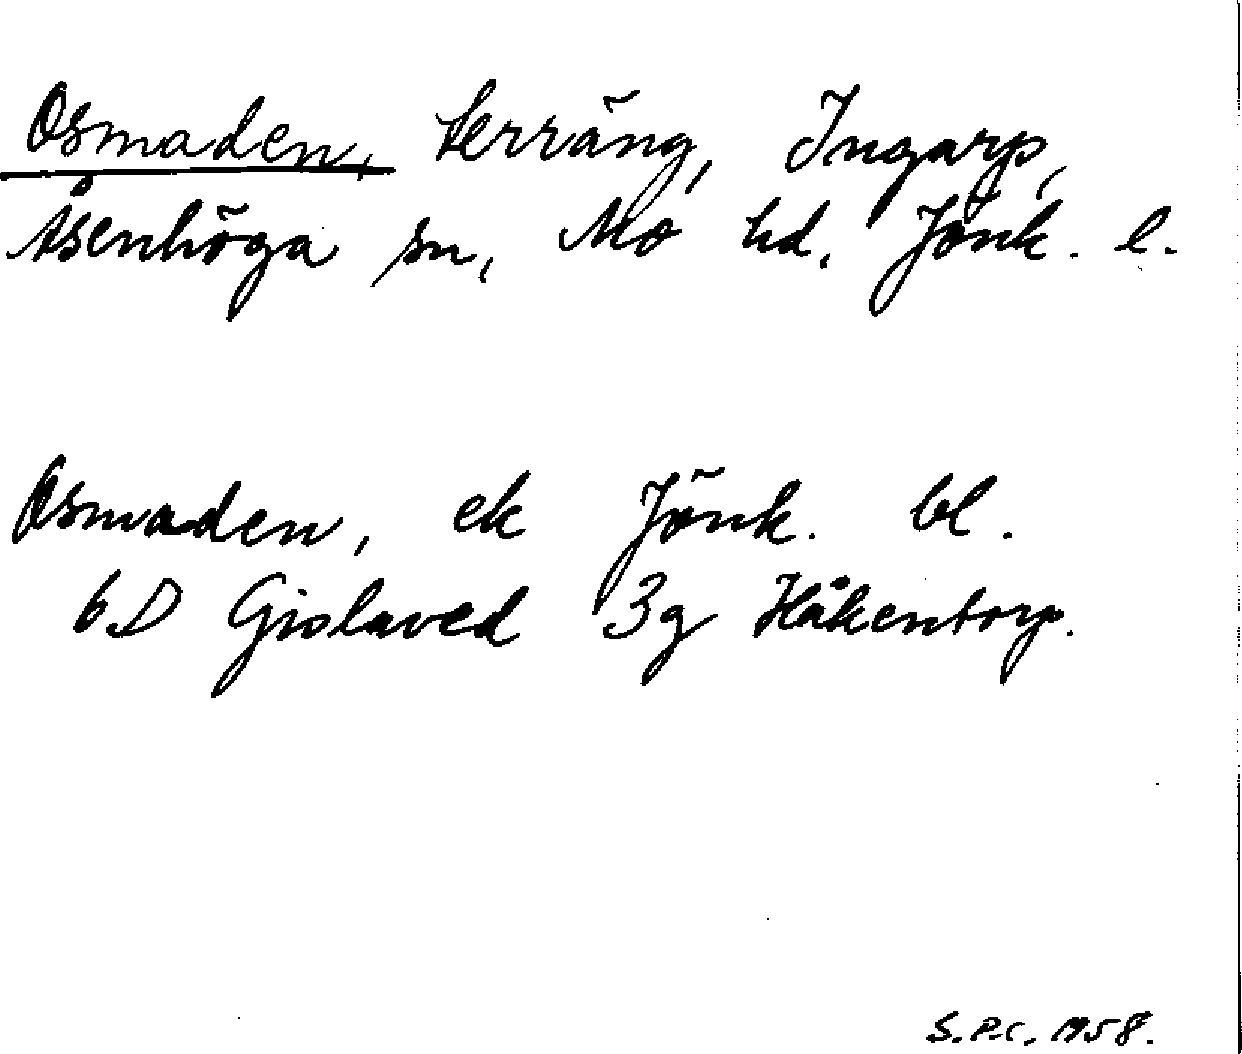 Osmaden, terräng, Ingarp,
Åsenhöga sn, Mo hd. Jönk. l.
Osmaden, ek Jönk. bl.
6D Gislaved 3g Håkentorp.
S.P.C. 1958.